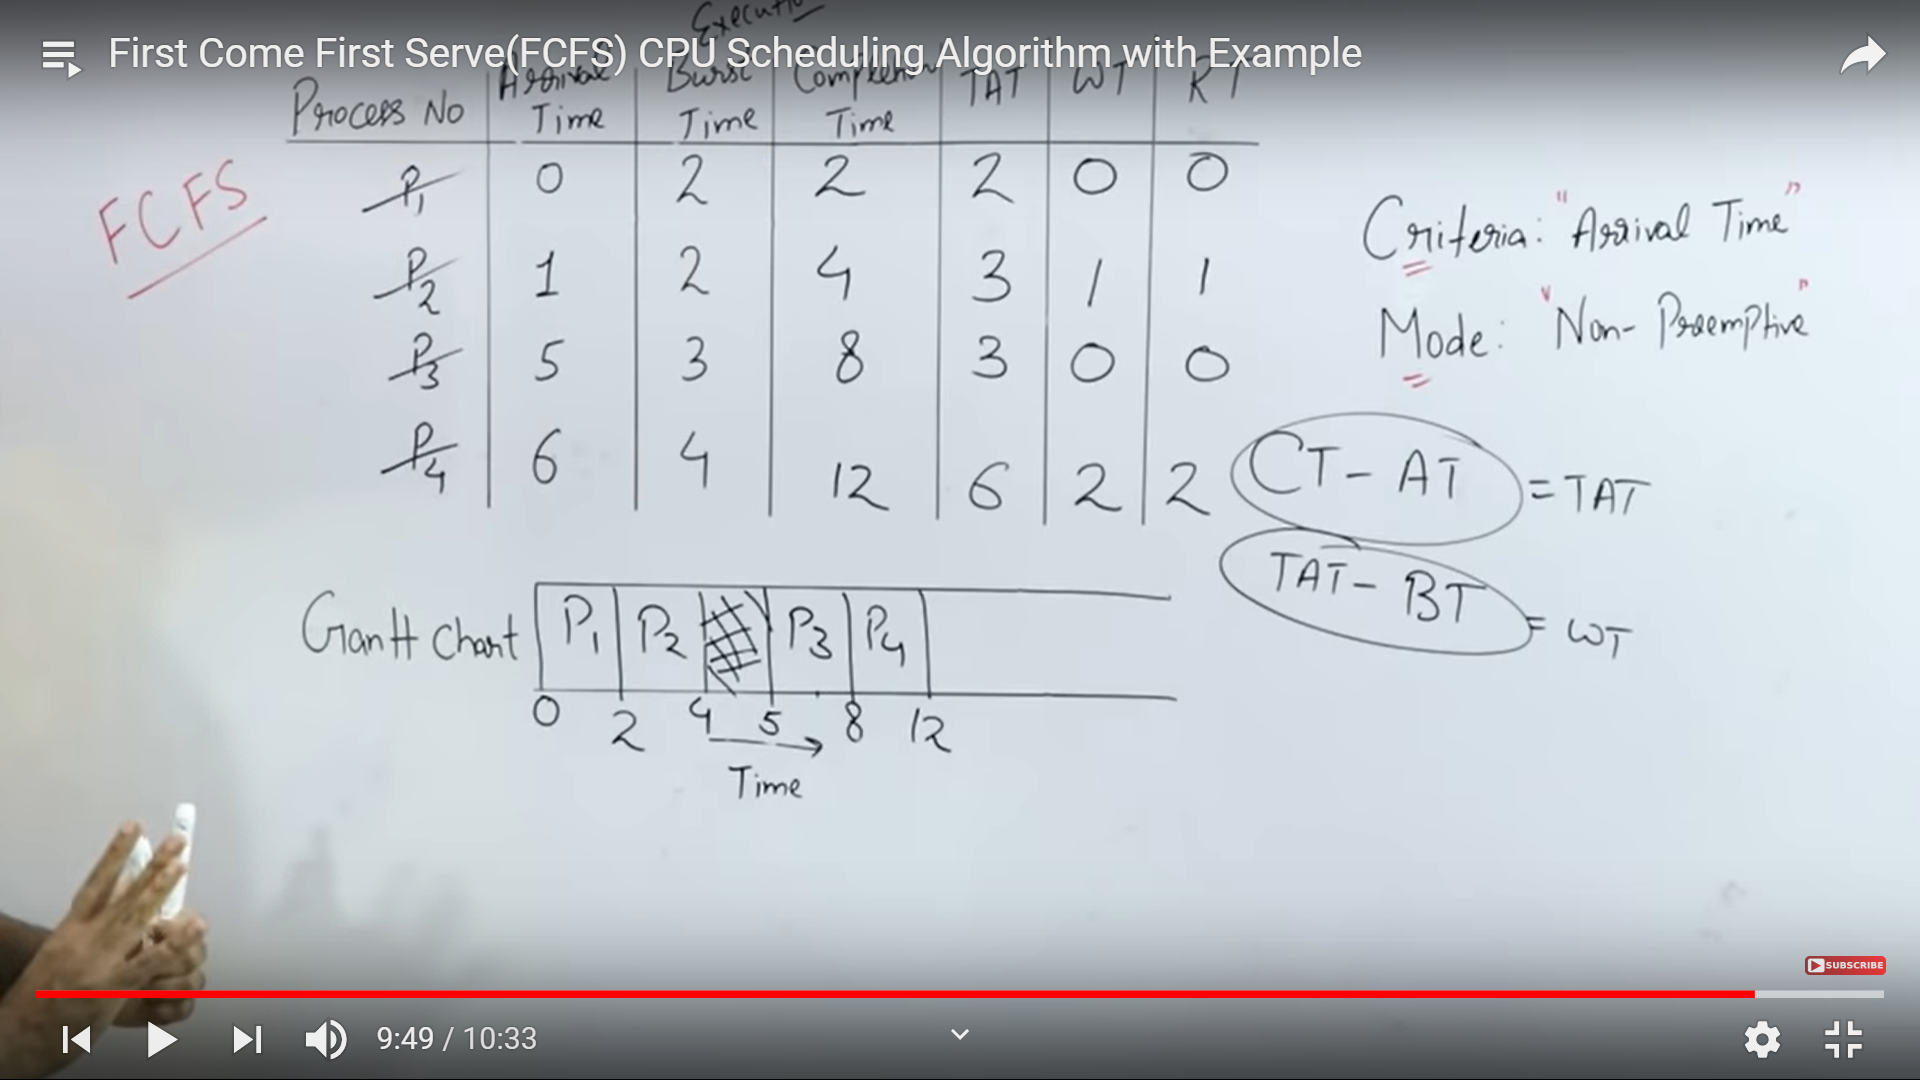 First Come First Serve(FCFS) CPU Scheduling Algorithm with Example
Process No Arrival Time Burst Time Completion Time TAT WT RT
FCFS
P1 0 2 2 2 0 0
P2 1 2 4 3 1 1
P3 5 3 8 3 0 0
P4 6 4 12 6 2 2
Criteria: "Arrival Time"
Mode: "Non-Preemptive"
CT - AT = TAT
TAT - BT = WT
Gantt Chart P1 P2 P3 P4
0 2 4 5 8 12
Time
SUBSCRIBE
9:49 / 10:33